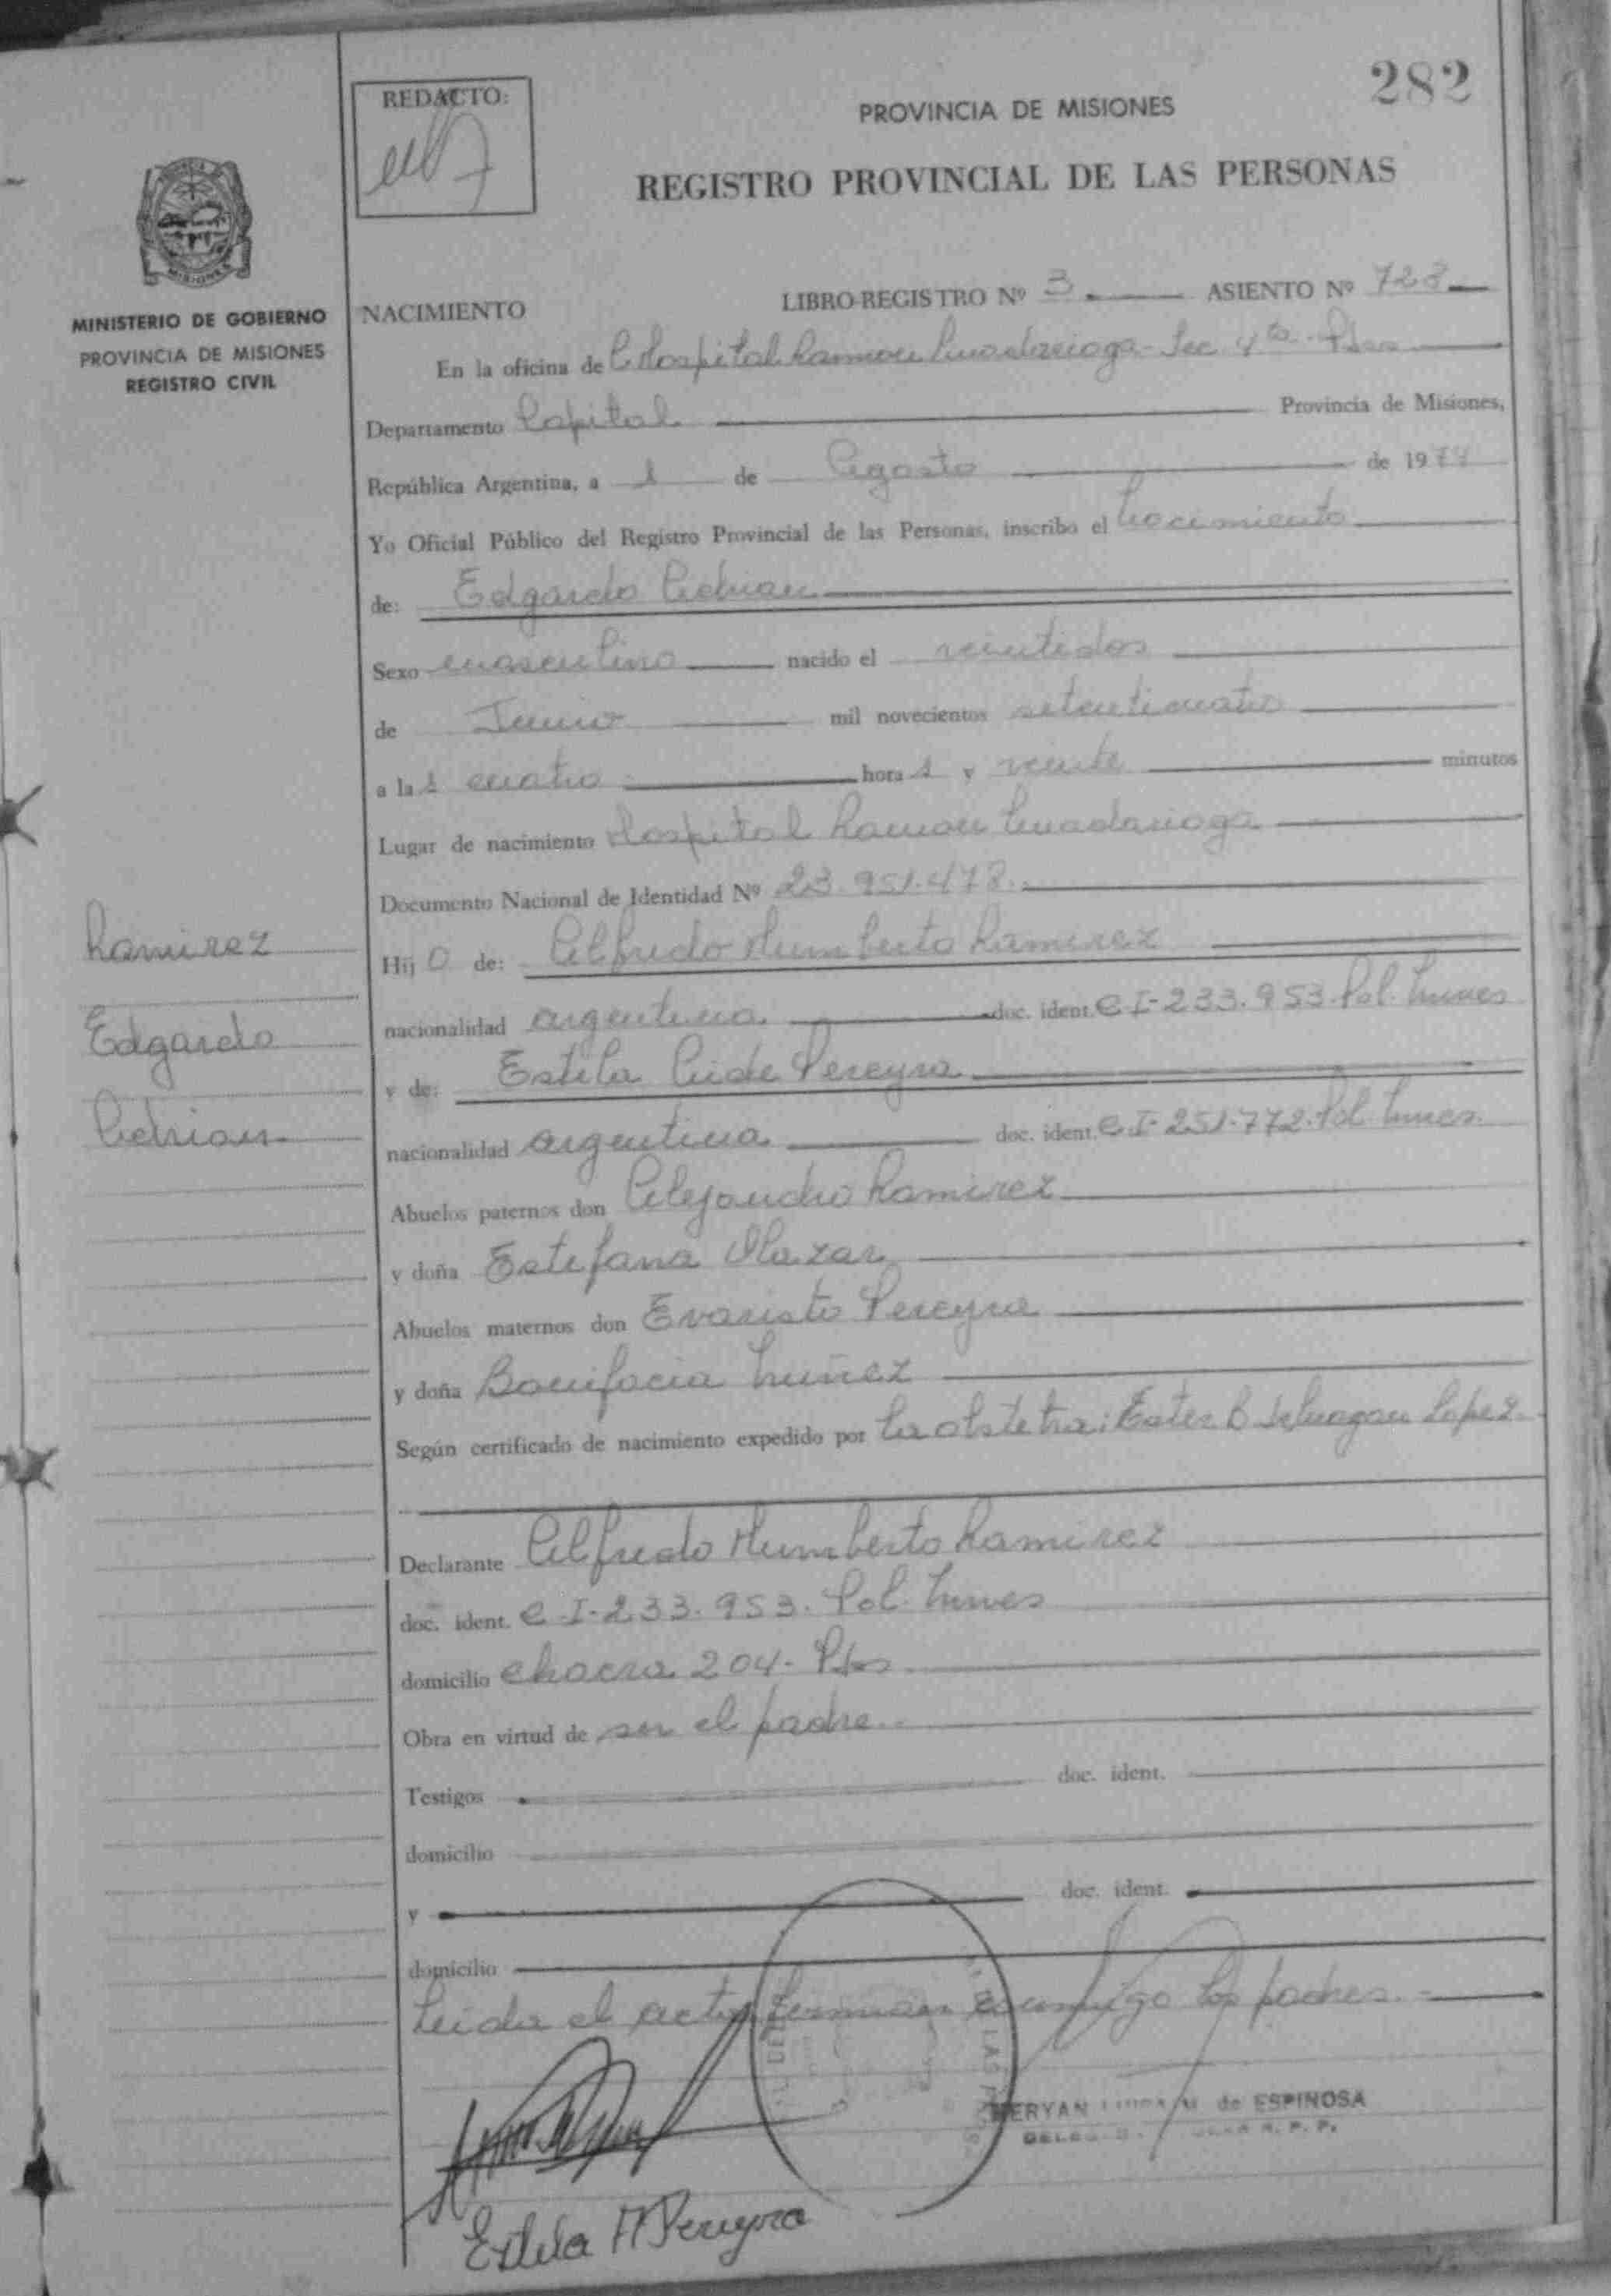 282
REDACTO:
PROVINCIA DE MISIONES
REGISTRO PROVINCIAL DE LAS PERSONAS
MISIONES
MINISTERIO DE GOBIERNO
PROVINCIA DE MISIONES
REGISTRO CIVIL
NACIMIENTO LIBRO-REGISTRO Nº 3 ASIENTO Nº 728
En la oficina de Hospital Ramon Madariaga - Sec 4ta - Pdas
Departamento Capital Provincia de Misiones,
República Argentina, a 1 de Agosto de 1974
Yo Oficial Público del Registro Provincial de las Personas, inscribo el nacimiento
de: Edgardo Adrian
Sexo masculino nacido el veintidos
de Junio mil novecientos setenticuatro
a las cuatro horas y veinte minutos
Lugar de nacimiento Hospital Ramon Madariaga
Documento Nacional de Identidad Nº 23.951.478.
Hijo de: Alfredo Humberto Ramirez
nacionalidad argentina doc. ident. C I-233.953. Pol. Mnes
y de: Estela Aide Pereyra
nacionalidad argentina doc. ident. C I-251.772. Pol. Mnes.
Abuelos paternos don Alejandro Ramirez
y doña Estefana
Abuelos maternos don Evaristo Pereyra
y doña Bonifacia Nuñez
Según certificado de nacimiento expedido por la obstetra: Ester B Lopez.
Declarante Alfredo Humberto Ramirez
doc. ident. C I-233.953. Pol. Mnes
domicilio chacra 204- Pdas
Obra en virtud de ser el padre.
Testigos doc. ident.
domicilio
y doc. ident.
domicilio
Leida el acta, firman conmigo los padres.-
Ramirez
Edgardo
Adrian
de ESPINOSA
R. P. P.
Estela A Pereyra